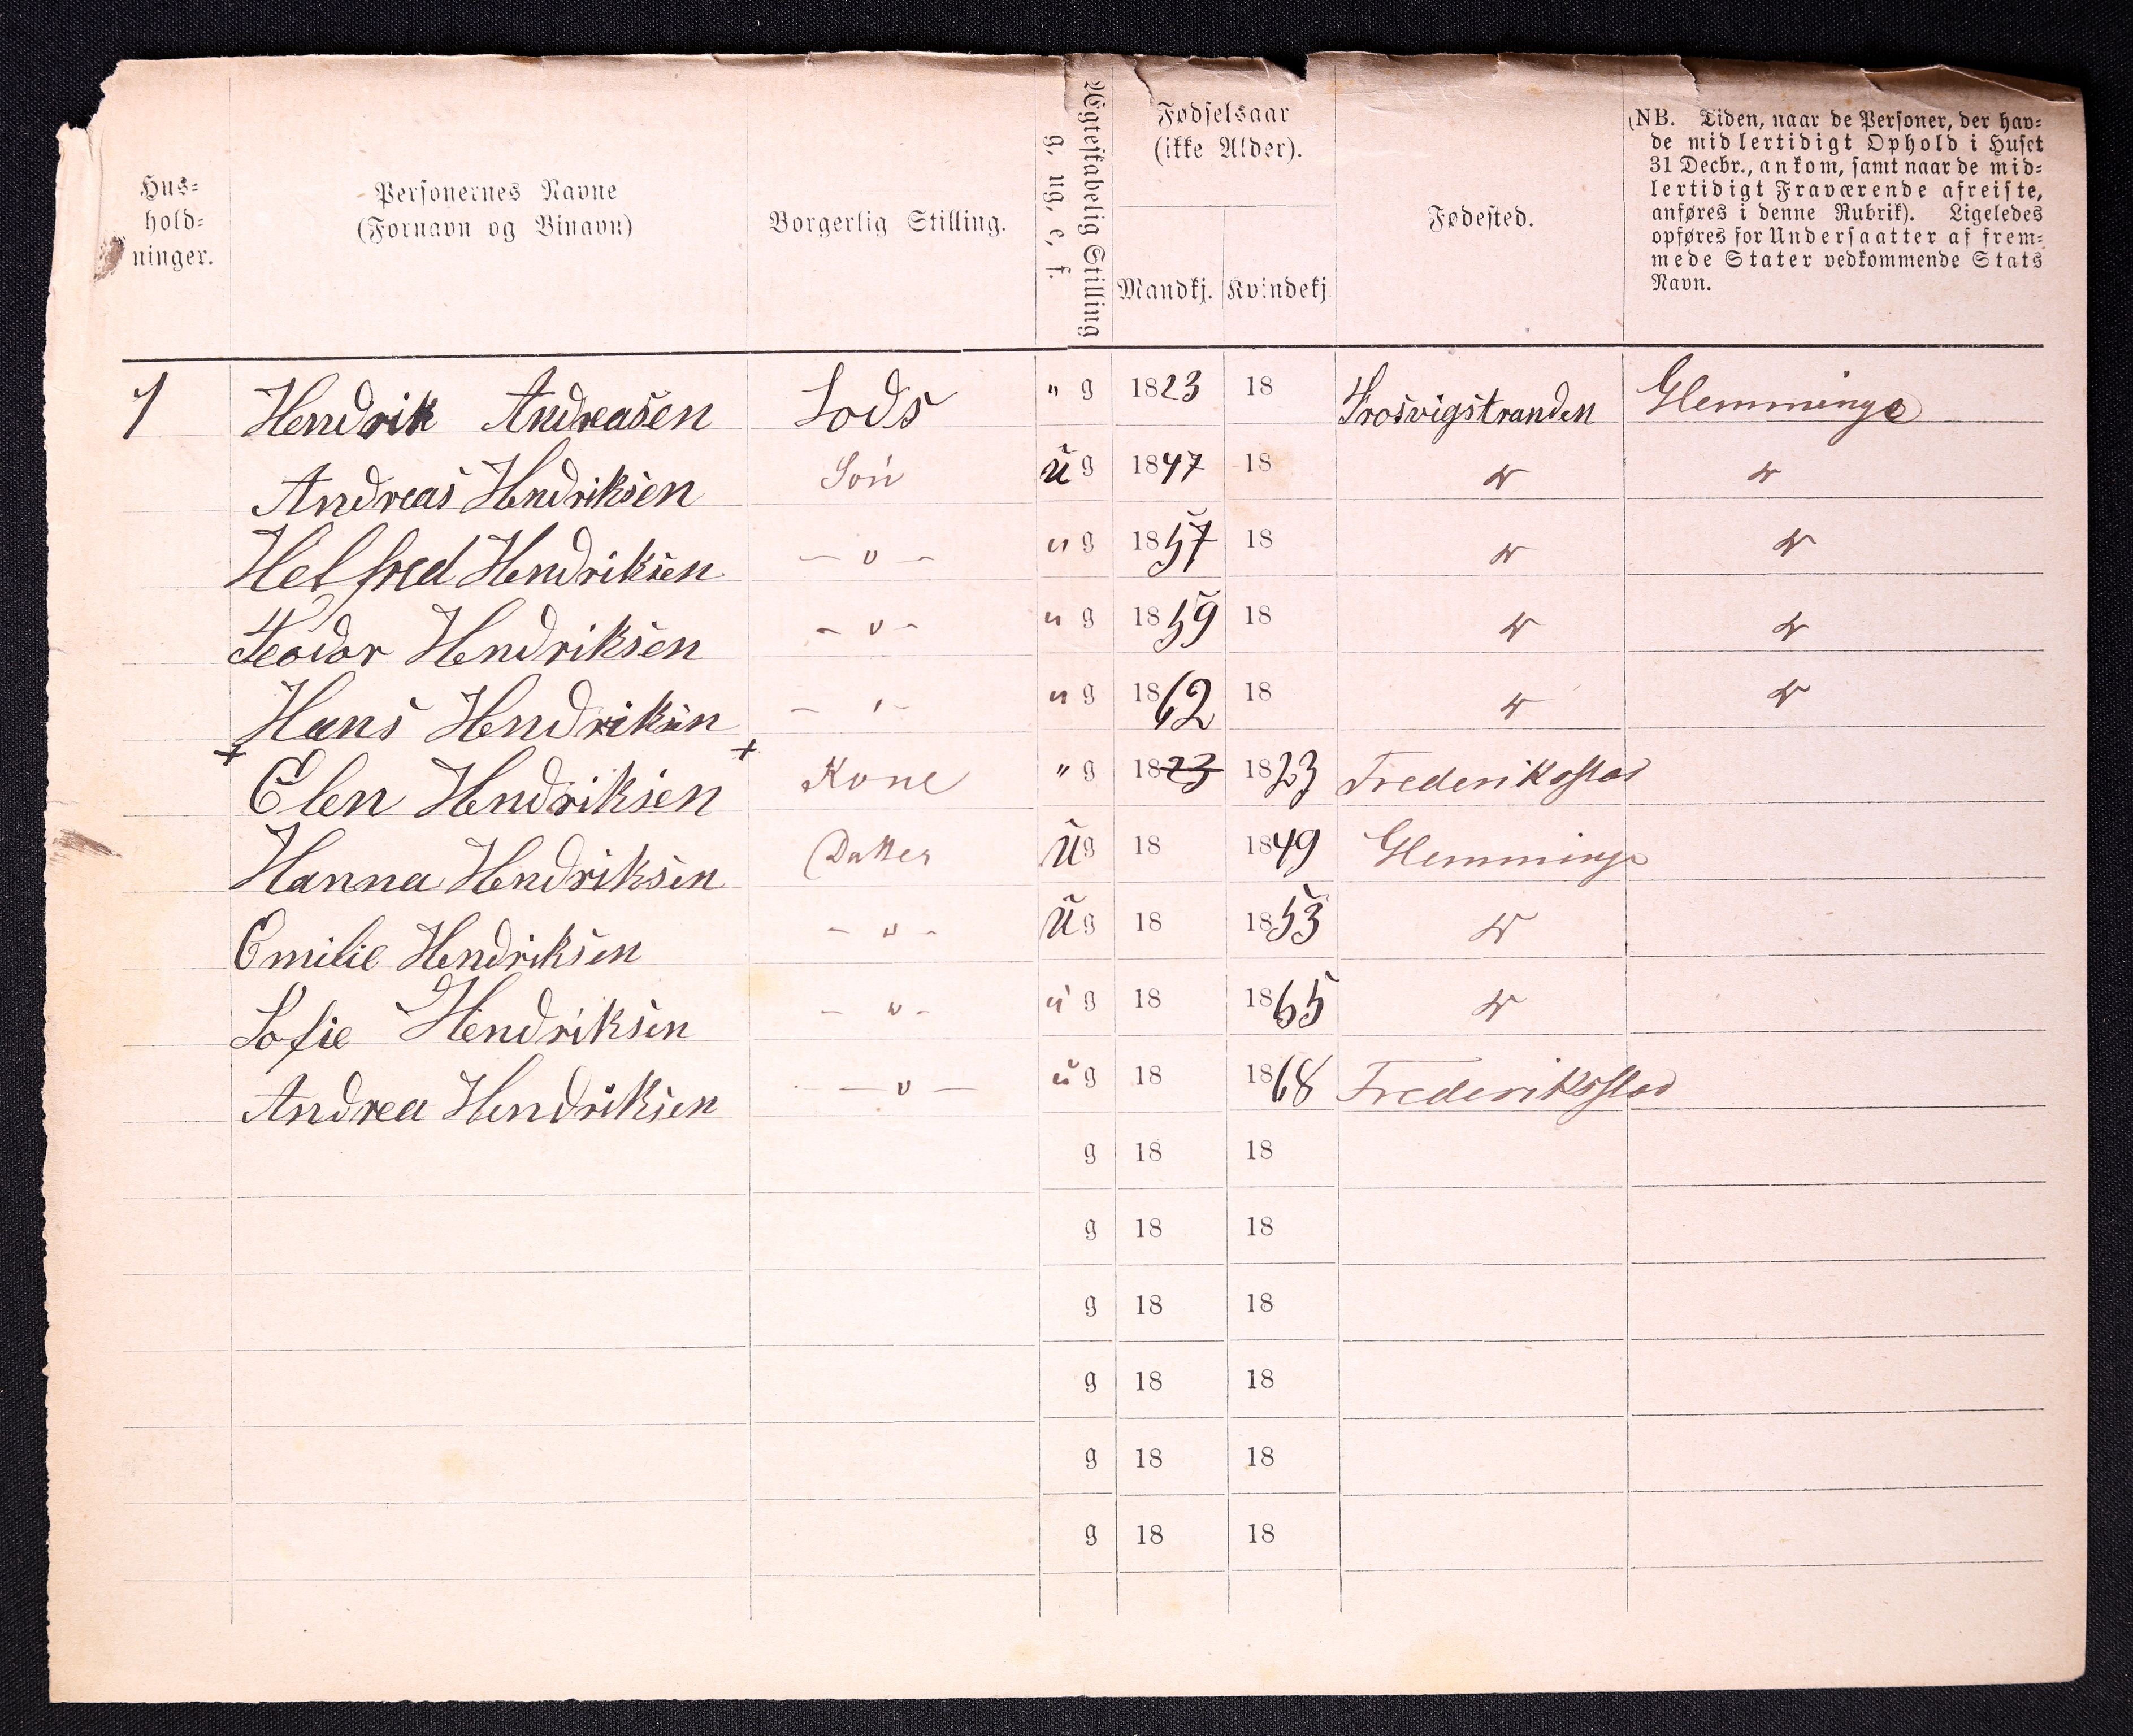 Hus=
hold=
ninger.
Personernes Navne
(Fornavn og Binavn)
Borgerlig Stilling.
Ægteskabelig Stilling
g, ug, e, f.
Fødselsaar
(ikke Alder).
Mandkj. Kvindekj
Fødested.
(NB. Tiden, naar de Personer, der hav=
de midlertidigt Ophold i Huset
31 Decbr., ankom, samt naar de mid=
lertidigt Fraværende afreiste,
anføres i denne Rubrik). Ligeledes
opføres for Undersaatter af frem=
mede Stater vedkommende Stats
Navn.
1 Hendrik Andreasen Lods " g 1823 18 Trosvigstranden Glemminge
Andreas Hendriksen Søn u g 1847 18 " "
Helfred Hendriksen — " — u g 1857 18 " "
Teodor Hendriksen - " - u g 1859 18 " "
Hans Hendriksen - " - u g 1862 18 " "
+ Elen Hendriksen + Kone " g 1823 1823 Frederiksstad
Hanna Hendriksen Datter u g 18 1849 Glemminge
Emilie Hendriksen - " - u g 18 1853 "
Sofie Hendriksen - " - u g 18 1865 "
Andrea Hendriksen — " — u g 18 1868 Frederiksstad
g 18 18
g 18 18
g 18 18
g 18 18
g 18 18
g 18 18